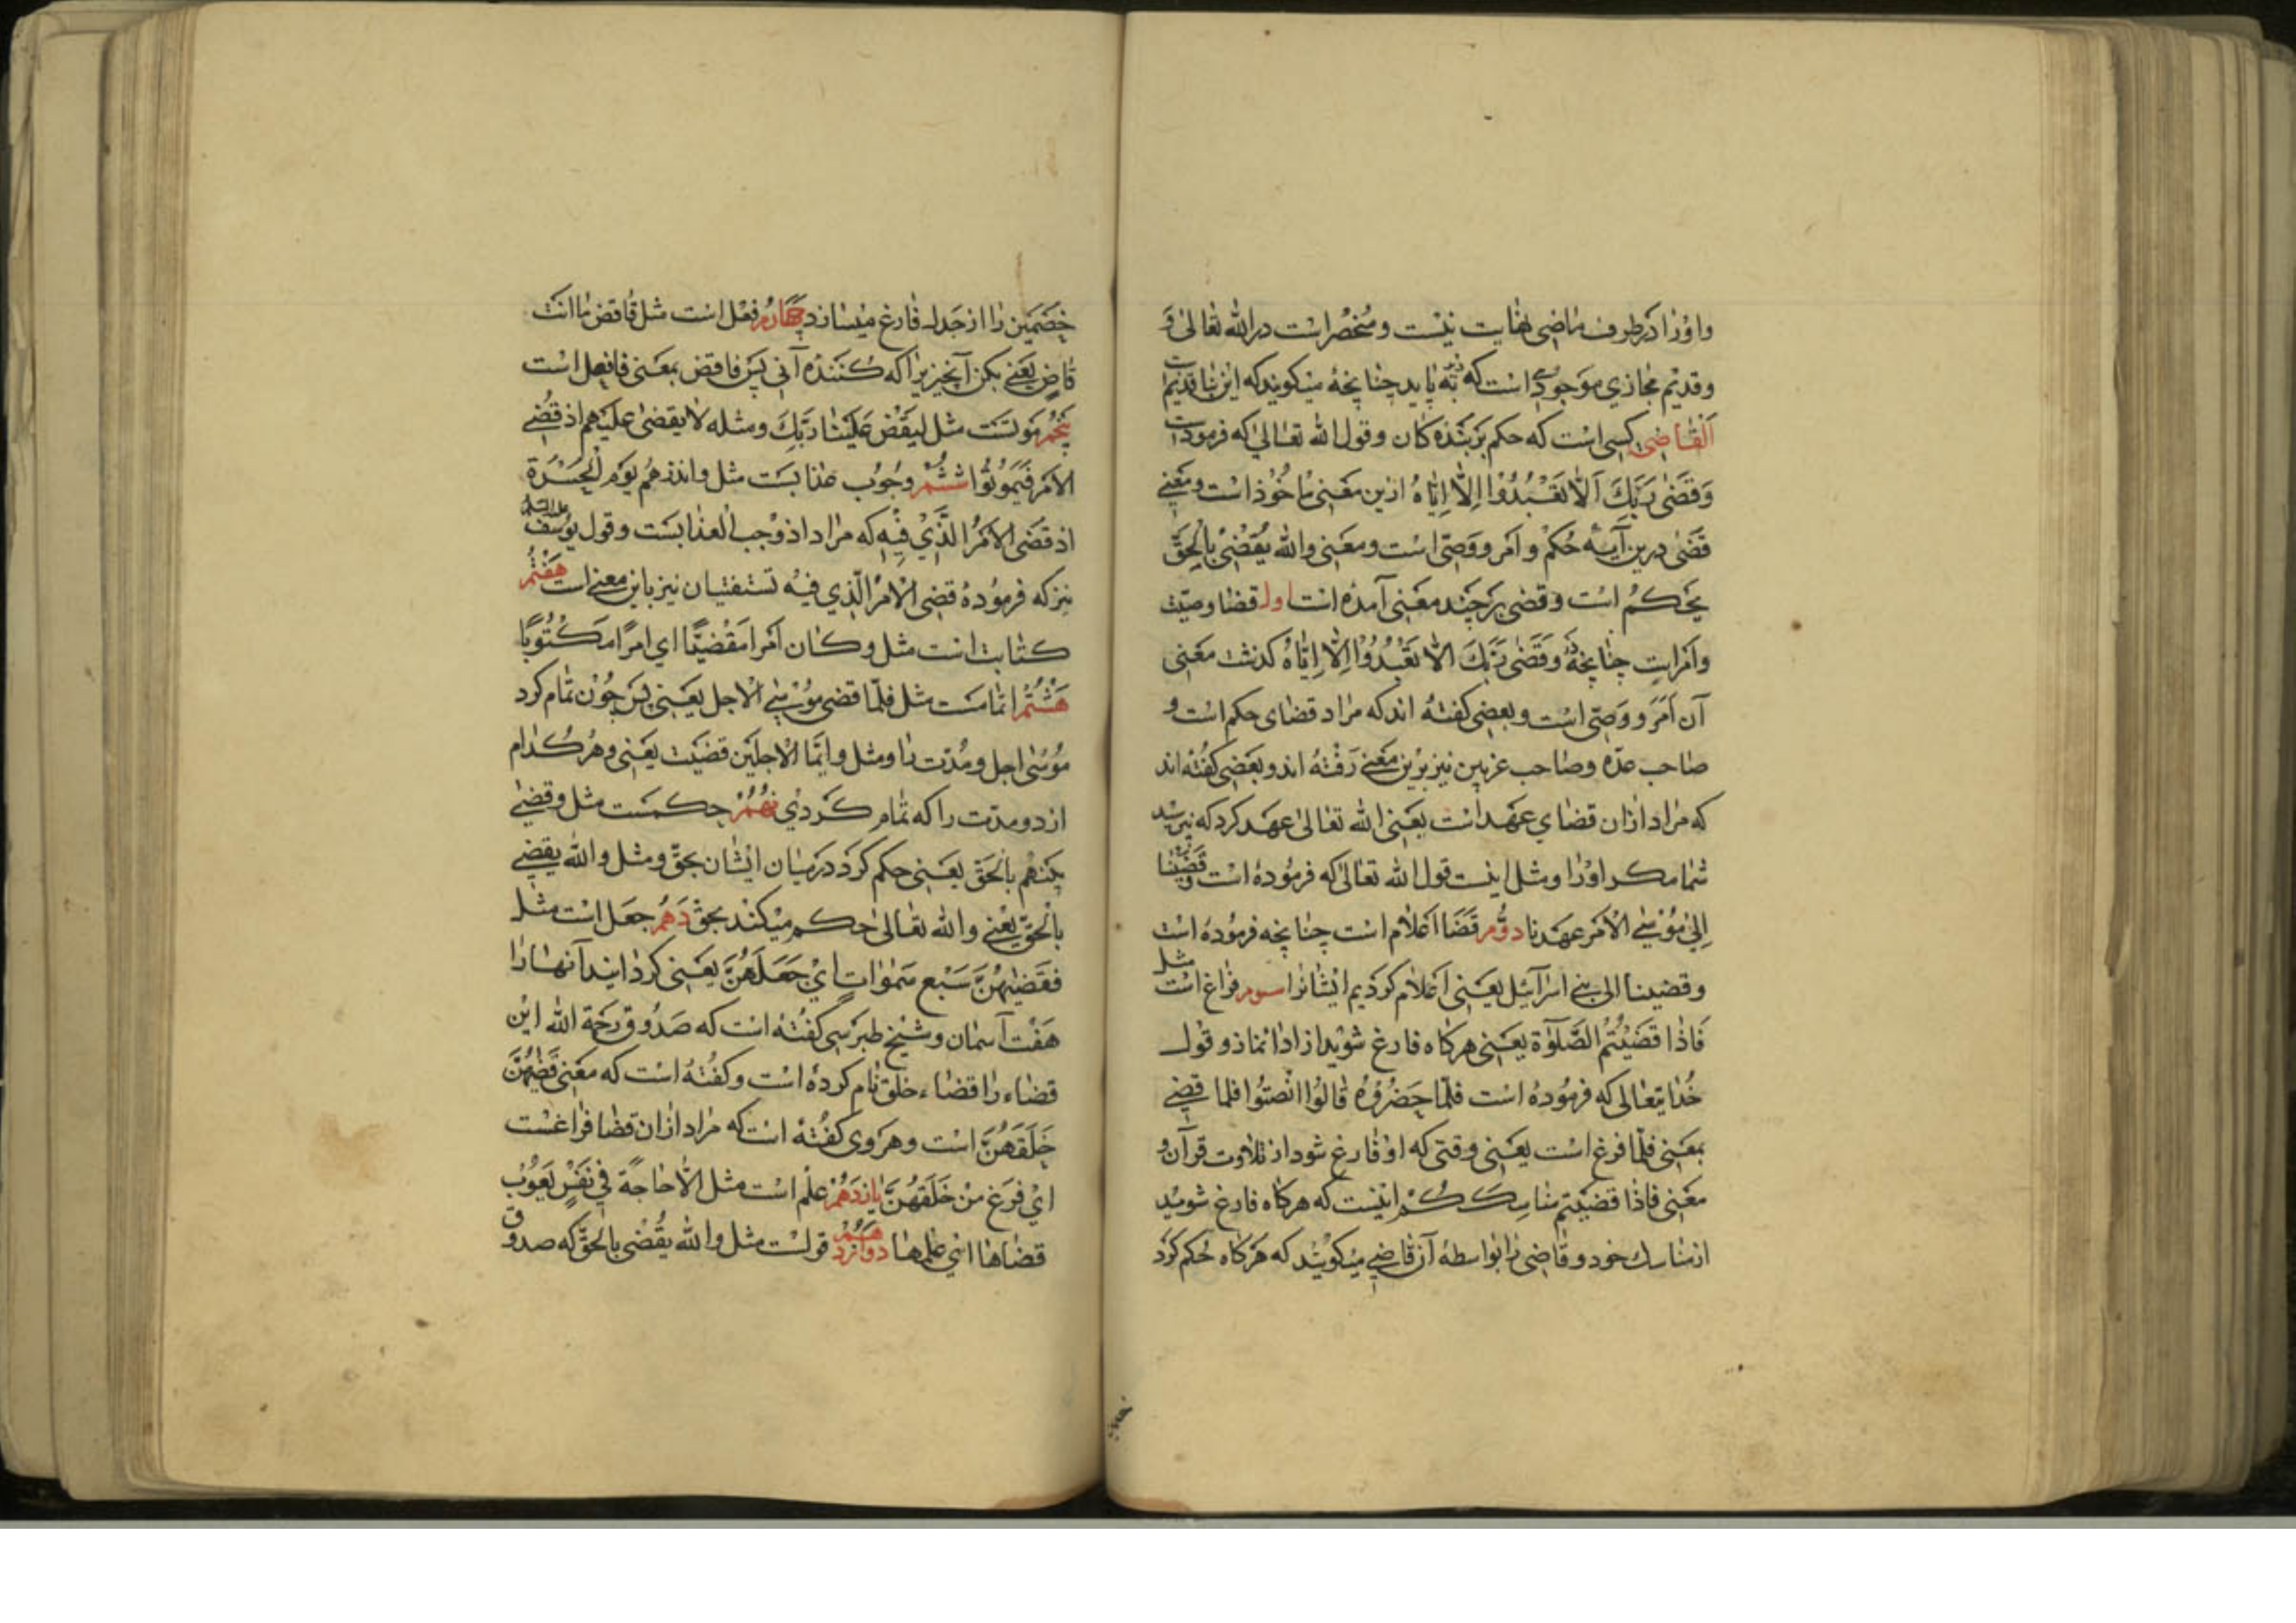 واو را در طرف ماضی نهایت نیست و منحصر است در الله تعالی و
و قدیم مجازی موجودی است که نپاید چنانچه میگویند که این بنا قدیم است
القاضی کسی است که حکم بر بنده کان و قول الله تعالی که فرموده است
وَقَضٰی رَبُّكَ اَلّا تَعْبُدُوْا اِلّا اِیّاهُ ازین معنی ماخوذ است و معنی
قضی درین آیه حُکم و اَمَر و وَصّی است و معنی والله یَقْضِیْ بِالْحَقّ
یحکمُ است و قضی بر چند معنی آمده است اول قضا وصیت
و امرات چنانچه در وَقَضٰی رَبُّكَ اَلّا تَعْبُدُوْا اِلّا اِیّاهُ گذشت معنی
آن اَمَرَ و وَصّی است و بعضی گفته اند که مراد قضای حکم است و
صاحب عدّه و صاحب غریبین نیز برین معنی رفته اند و بعضی گفته اند
که مراد ازان قضای عهد است یعنی الله تعالی عهد کرد که نپرستید
شما مگر او را و مثل اینست قول الله تعالی که فرموده است وقضینا
اِلی مُوْسَی الْاَمر عهدنا دوّم قضا اعلام است چنانچه فرموده است
وقضینا الی بنی اسرآئیل یعنی اعلام کردیم ایشانرا سوم فراغ است مثل
فَاذا قَضَیْتُمُ الصَّلوٰة یعنی هرکاه فارغ شوید از ادا نماز و قول
خُدایتعالی که فرموده است فلمّا حَضَرُوْهُ قالُوْا انْصِتُوا فلما قضی
بمعنی فلمّا فرغ است یعنی وقتی که او فارغ شود از تلاوت قرآن و
معنی فاذا قضیتم مناسِکَکُم اینست که هرکاه فارغ شوید
از مناسك خود و قاضی را بواسطهٔ آن قاضی میگویند که هرکاه حُکم کرد
خصمین را از جدال فارغ میسازد چهارم فعل است مثل فاقض ما انت
قاضٍ یعنی بکن آنچیزیرا که کننده آنی پس فاقض بمعنی فافعل است
پنجم موتست مثل لیَقْضِ عَلَیْنا رَبُّكَ و مثله لا یقضی علیهم اذ قُضِی
الامر فَیَمُوتُوا ششُم وجُوب عذابست مثل وانذرهُم یوم الحَسْرَة
اذ قضی الامرُ الَّذِیْ فِیْهِ که مراد اذ وجب العذابست و قول یوسف علیه السلم
نیز که فرموده قضی الامرُ الّذی فیه تستفتیان نیز باین معنی است هفتم
کتابت است مثل و کان امراً مَقْضیّاً ای امرًا مَکْتُوبًا
هَشتُم اتمامست مثل فلمّا قضی مُوْسَی الاجل یعنی پس چون تمام کرد
مُوسٰی اجل و مُدّت را و مثل وایّما الاجلَین قضیت یعنی و هر کدام
از دو مدّت را که تمام کردی نهُم حکمست مثل وقضی
بینهم بالحَق یعنی حکم کرد در میان ایشان بحقّ و مثل والله یقضی
بالحقّ یعنی والله تعالی حکم میکند بحق دَهُم جعل است مثل
فَقَضیٰهُنَّ سَبْع سَمٰوات اَیْ جَعَلَهُنَّ یعنی گردانید آنها را
هفت آسمان و شیخ طبرسی گفته است که صدوق رحمة الله این
قضاء را قضاء خلق نام کرده است و گفته است که معنی قَضٰیهُنَّ
خَلَقَهُنَّ است و هروی گفته است که مراد ازان قضا فراغست
ایْ فَرَغ مِنْ خَلَقهُنَّ یازدهُم علم است مثل الّا حاجةً فی نَفْسِ یَعقُوب
قضاها ای علمها دوازدهُم قولست مثل والله یَقْضی بالحَقّ که صدوق